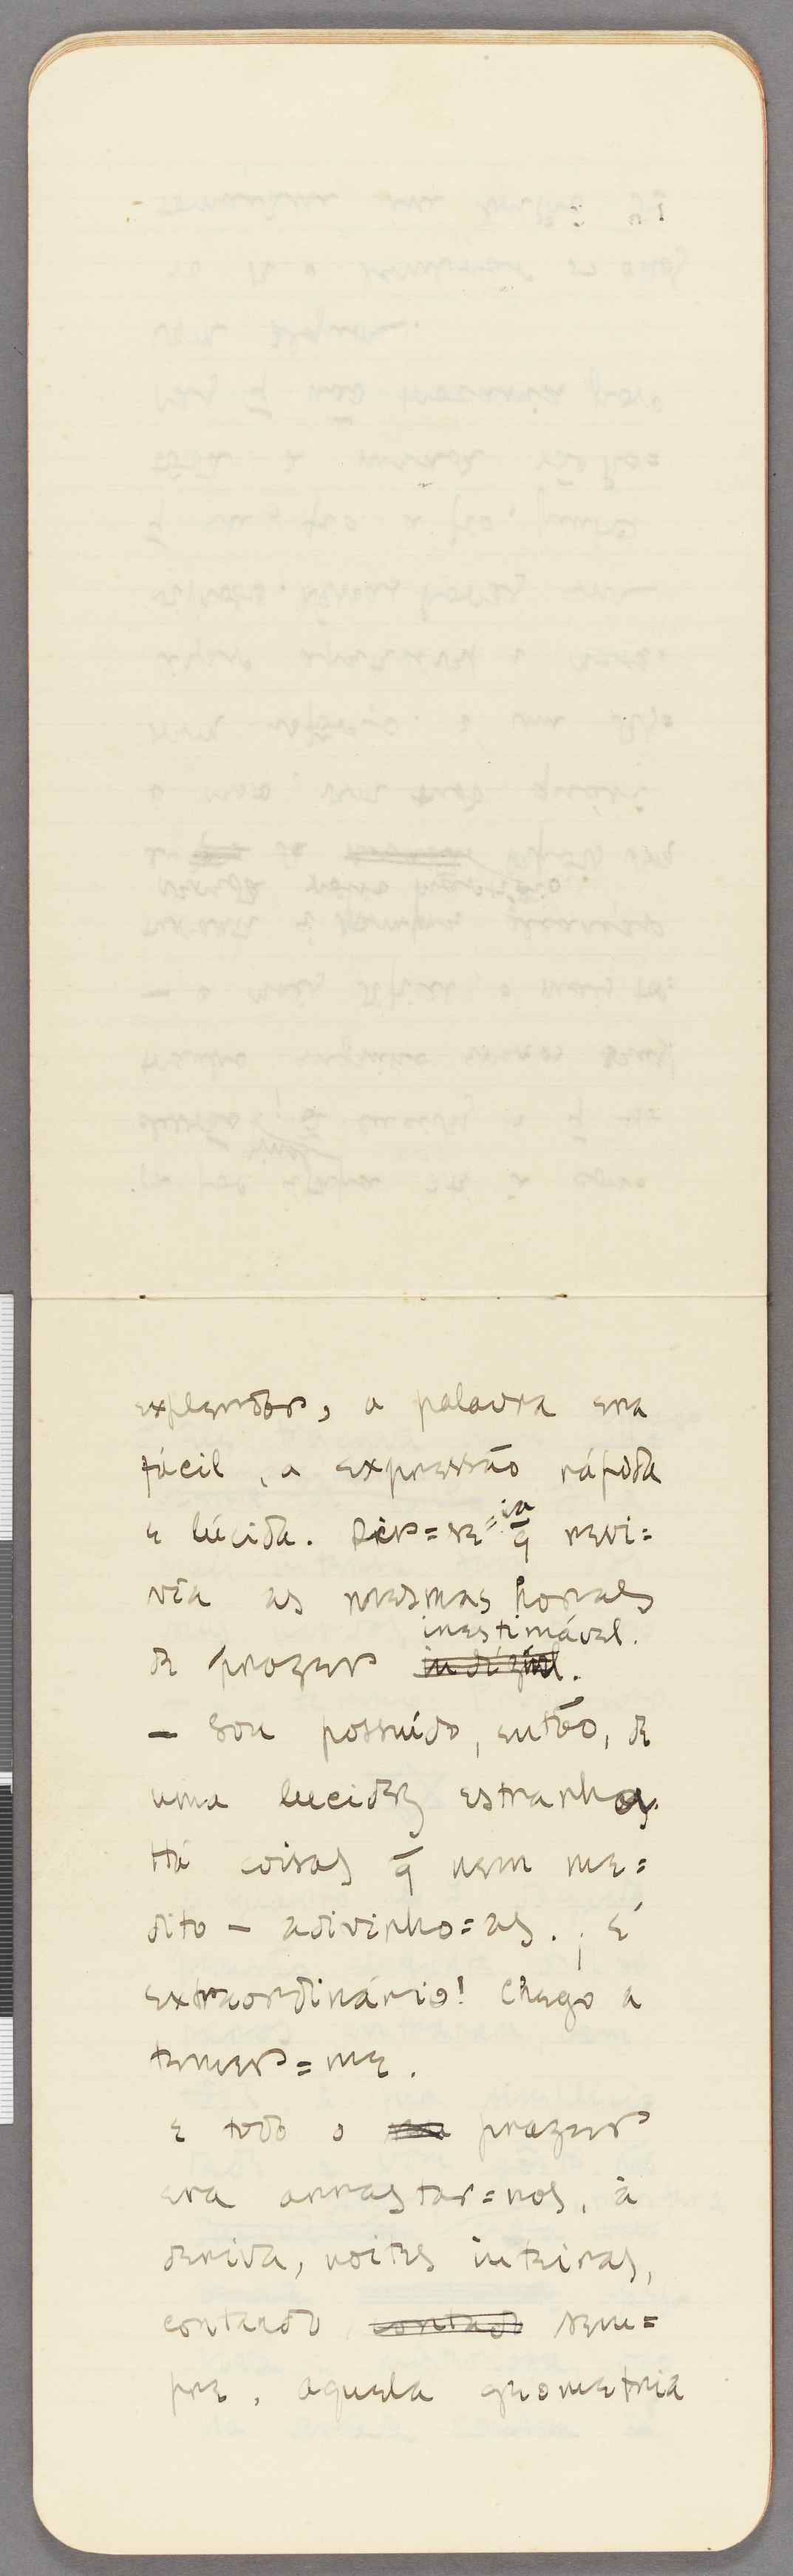 explendor, a palavra era
fácil, a expressão rápida
e lúcida. Dir=se=ia q̄ revi=
via as mesmas horas
de prazer indizível. inestimável.
— Sou possuído, então, de
uma lucidez estranha.
Há coisas q̄ nem me=
dito — adivinho=as. ; É
extraordinário! Chego a
temer=me.
e todo o prazer
era arrastar=nos, à
deriva, noites inteiras,
contando contado sem=
pre, aquela geometria